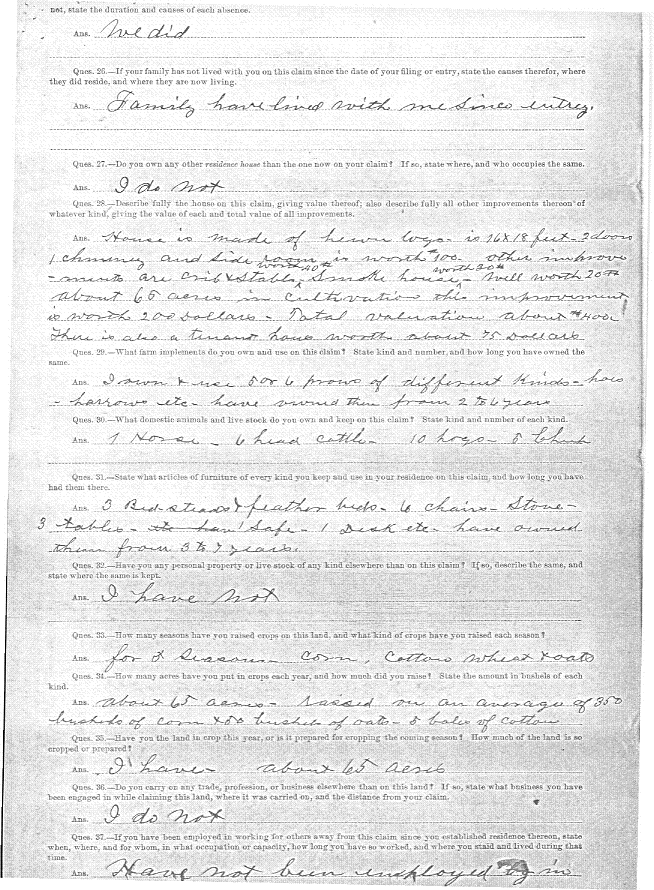 not, state the duration and causes of each absence.
Ans. We did
Ques. 26.—If your family has not lived with you on this claim since the date of your filing or entry, state the causes therefor, where
they did reside, and where they are now living.
Ans. Family have lived with me since entrey.
Ques. 27.—Do you own any other residence house than the one now on your claim? If so, state where, and who occupies the same.
Ans. I do not
Ques. 28.—Describe fully the house on this claim, giving value thereof; also describe fully all other improvements thereon of
whatever kind, giving the value of each and total value of all improvements.
Ans. House is made of hewn logs - is 16x18 feet - 2 doors
1 chimney and side room is worth $100 - other improve
worth 40 worth 20
-ments are crib & Stable, Smoke house, - Well worth 20
about 65 acres in cultivation this improvement
is worth 200 Dollars - Total valuation about $400
There is also a tenant hous worth about 75 Dollars
Ques. 29.—What farm implements do you own and use on this claim? State kind and number, and how long you have owned the
same.
Ans. I own & use 5 or 6 plows of different kinds - hoes
- harrows etc - have owned them from 2 to 6 years
Ques. 30.—What domestic animals and live stock do you own and keep on this claim? State kind and number of each kind.
Ans. 1 Horse - 6 head cattle - 10 hogs -
Ques. 31.—State what articles of furniture of every kind you keep and use in your residence on this claim, and how long you have
had them there.
Ans. 3 Bed-steads & feather beds - 6 chairs - Stove -
3 tables - Safe - 1 Desk etc - have owned
them from 3 to 7 years.
Ques. 32.—Have you any personal property or live stock of any kind elsewhere than on this claim? If so, describe the same, and
state where the same is kept.
Ans. I have not
Ques. 33.—How many seasons have you raised crops on this land, and what kind of crops have you raised each season?
Ans. for Seasons - Corn, Cotton wheat & oats
Ques. 34.—How many acres have you put in crops each year, and how much did you raise? State the amount in bushels of each
kind.
Ans. about 65 acres - raised on an average of 350
bushels of corn & 50 bushels of oats - 5 bales of cotton
Ques. 35.—Have you the land in crop this year, or is it prepared for cropping the coming season? How much of the land is so
cropped or prepared?
Ans. I have - about 65 acres
Ques. 36.—Do you carry on any trade, profession, or business elsewhere than on this land? If so, state what business you have
been engaged in while claiming this land, where it was carried on, and the distance from your claim.
Ans. I do not
Ques. 37.—If you have been employed in working for others away from this claim since you established residence thereon, state
when, where, and for whom, in what occupation or capacity, how long you have so worked, and where you staid and lived during that
time.
Ans. Have not been employed in